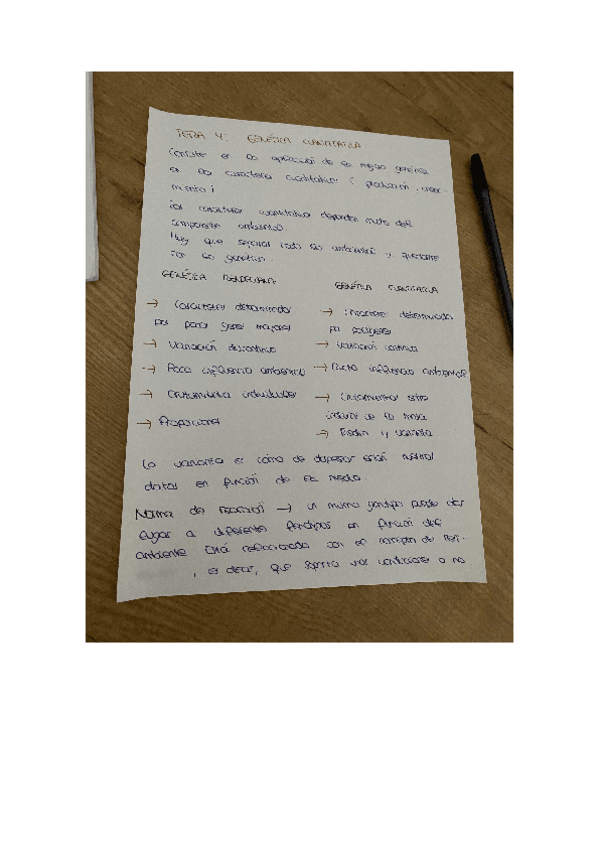 TEMA 4: GENÉTICA CUANTITATIVA
Consiste en la aplicación de la mejora genética
en los caracteres cuantitativos ( producción, creci-
miento )
Los caracteres cuantitativos dependen mucho del
componente ambiental.
Hay que separar todo lo ambiental y quedarme
con lo genético.
GENÉTICA MENDELIANA
GENÉTICA CUANTITATIVA
→ Caracteres determinados
por pocos genes mayores
→ Variación discontinua
→ Poca influencia ambiental
→ Cruzamientos individuales
→ Proporciones
→ Caracteres determinados
por poligenes
→ Variación continua
→ Mucha influencia ambiental
→ Cruzamientos entre
individuos de la misma
→ Media y varianza
La varianza es cómo de dispersos están nuestros
datos en función de la media.
Norma de reacción → un mismo genotipo puede dar
lugar a diferentes fenotipos en función del
ambiente. Está relacionada con el concepto de
, es decir, que soporta unas condiciones o no